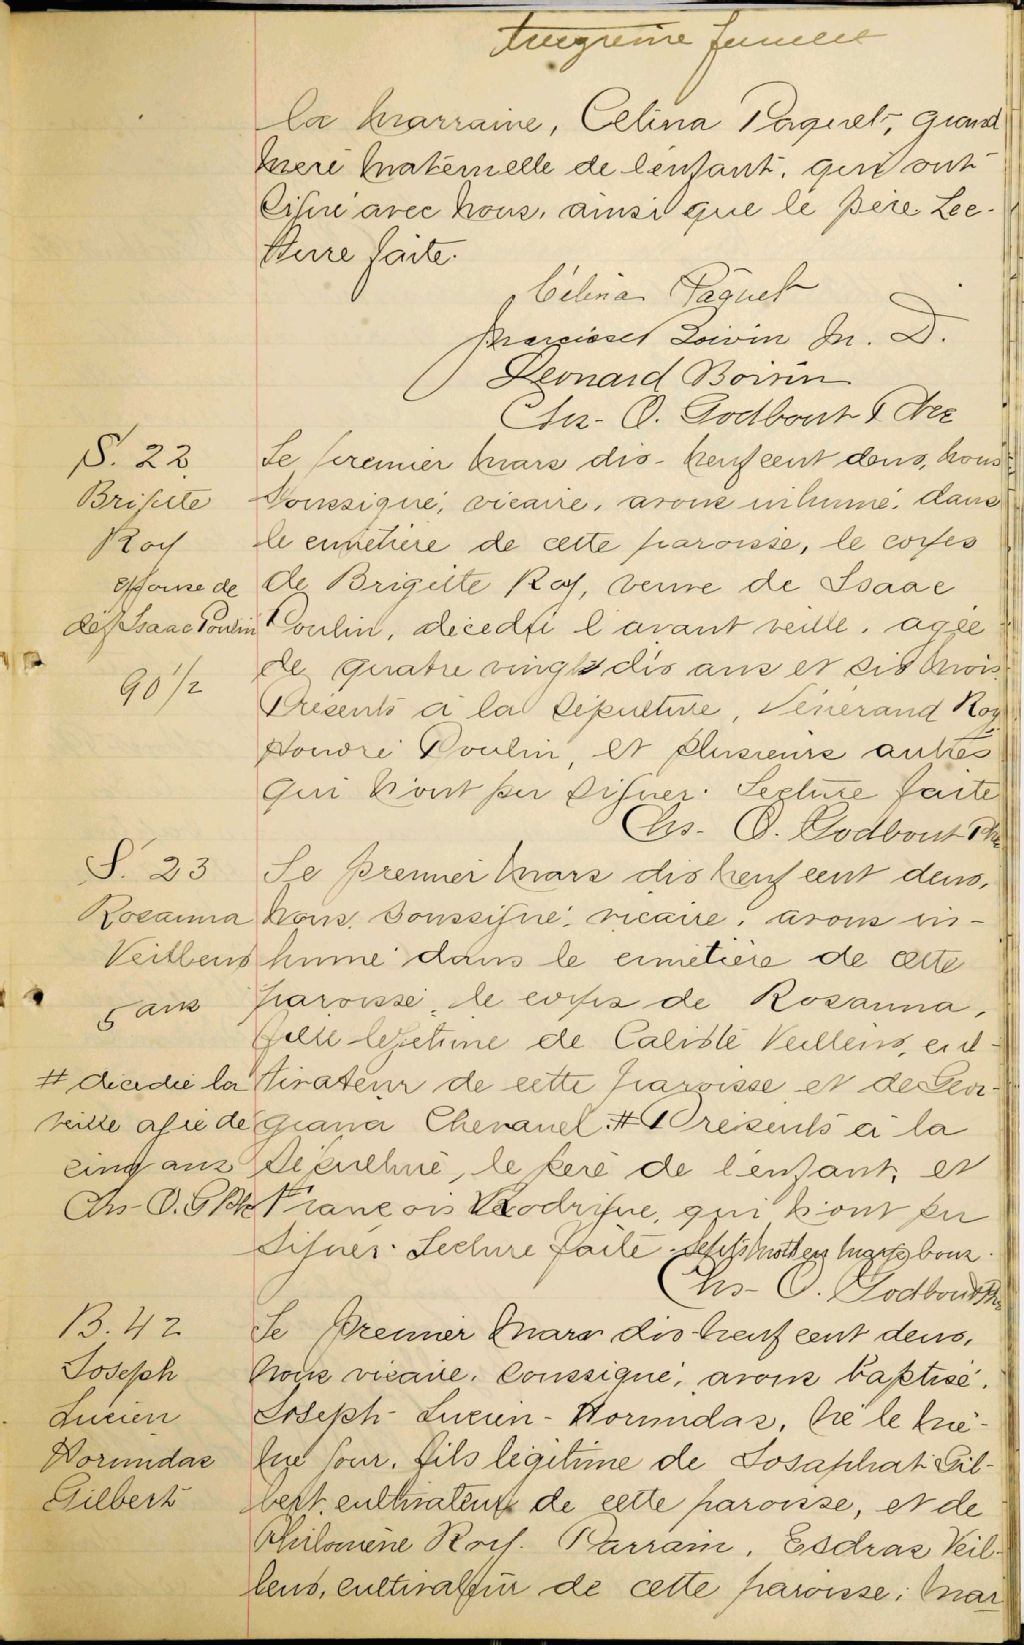 la marraine, Célina Paquet, grand
mère maternelle de l'enfant, qui ont
signé avec nous, ainsi que le père. Lec-
ture faite.
Célina Pâquet
Narcisse Boivin M. D.
Léonard Boivin
Chs. O. Godbout Ptre
S. 22
Brigitte
Roy
épouse de
déf Isaac Poulin
90 1/2
Le premier mars dix-neuf cent deux, nous
soussigné, vicaire, avons inhumé, dans
le cimétière de cette paroisse, le corps
de Brigitte Roy, veuve de Isaac
Poulin, décédée l'avant veille, agée
de quatre vingt dix ans et six mois.
Présents à la sépulture, Vénérand Roy
Honoré Poulin, et plusieurs autres
qui n'ont pu signer. Lecture faite
Chs. O. Godbout Ptre
S. 23
Rosanna
Veilleux
5 ans
Le premier mars dix neuf cent deux,
nous, soussigné, vicaire, avons in-
humé dans le cimetière de cette
paroisse, le corps de Rosanna,
fille légitime de Calixte Veilleux, cul-
tivateur de cette paroisse et de Geor-
giana Chevanel. # Présents à la
sépulture, le père de l'enfant, et
François Rodrigue, qui n'ont pu
signer. Lecture faite. Sept mots en marge bons.
Chs. O. Godbout Ptre
# décédée la
veille agée de
cinq ans
Chs. O. G Ptre
B. 42
Joseph
Lucien
Hormidas
Gilbert
Le premier mars dix-neuf cent deux,
nous vicaire, soussigné, avons baptisé,
Joseph-Lucien-Hormidas, né le mê-
me jour, fils légitime de Josaphat Gil-
bert, cultivateur de cette paroisse, et de
Philomène Roy. Parrain, Esdras Veil-
leux, cultivateur de cette paroisse; mar